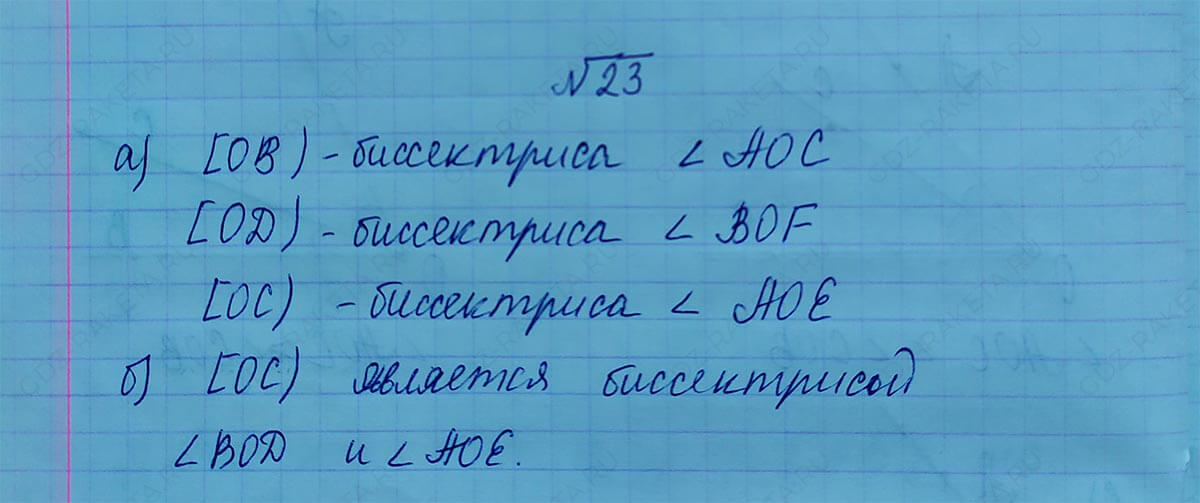 √23
а) [OB) - биссектриса ∠ AOC
[OD) - биссектриса ∠ BOF
[OC) - биссектриса ∠ AOE
б) [OC) является биссектрисой
∠BOD и ∠AOE.
GDZ-RAKETA.RU